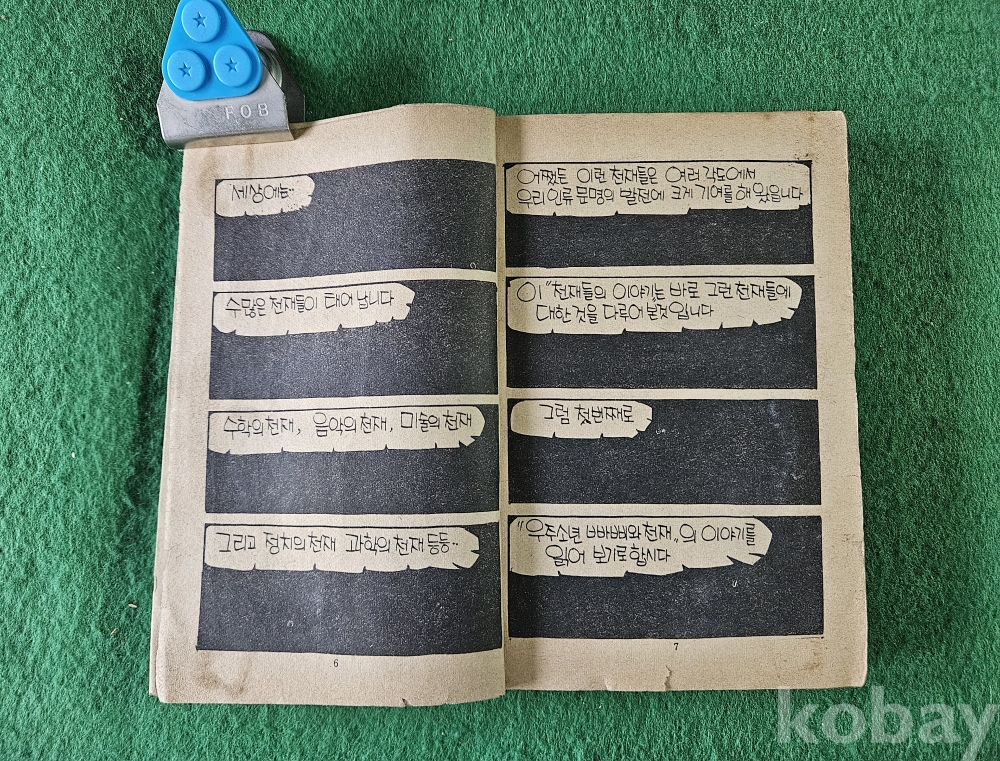 FOB
세상에는··
수많은 천재들이 태어 납니다
수학의 천재, 음악의 천재, 미술의 천재
그리고 정치의 천재 과학의 천재 등등··
6
어쨌든 이런 천재들은 여러 각도에서
우리 인류 문명의 발전에 크게 기여를 해 왔읍니다
이 "천재들의 이야기"는 바로 그런 천재들에
대한 것을 다루어 본것입니다
그럼 첫번째로
"우주소년 빠삐와 천재"의 이야기를
읽어 보기로 합시다
7
kobay